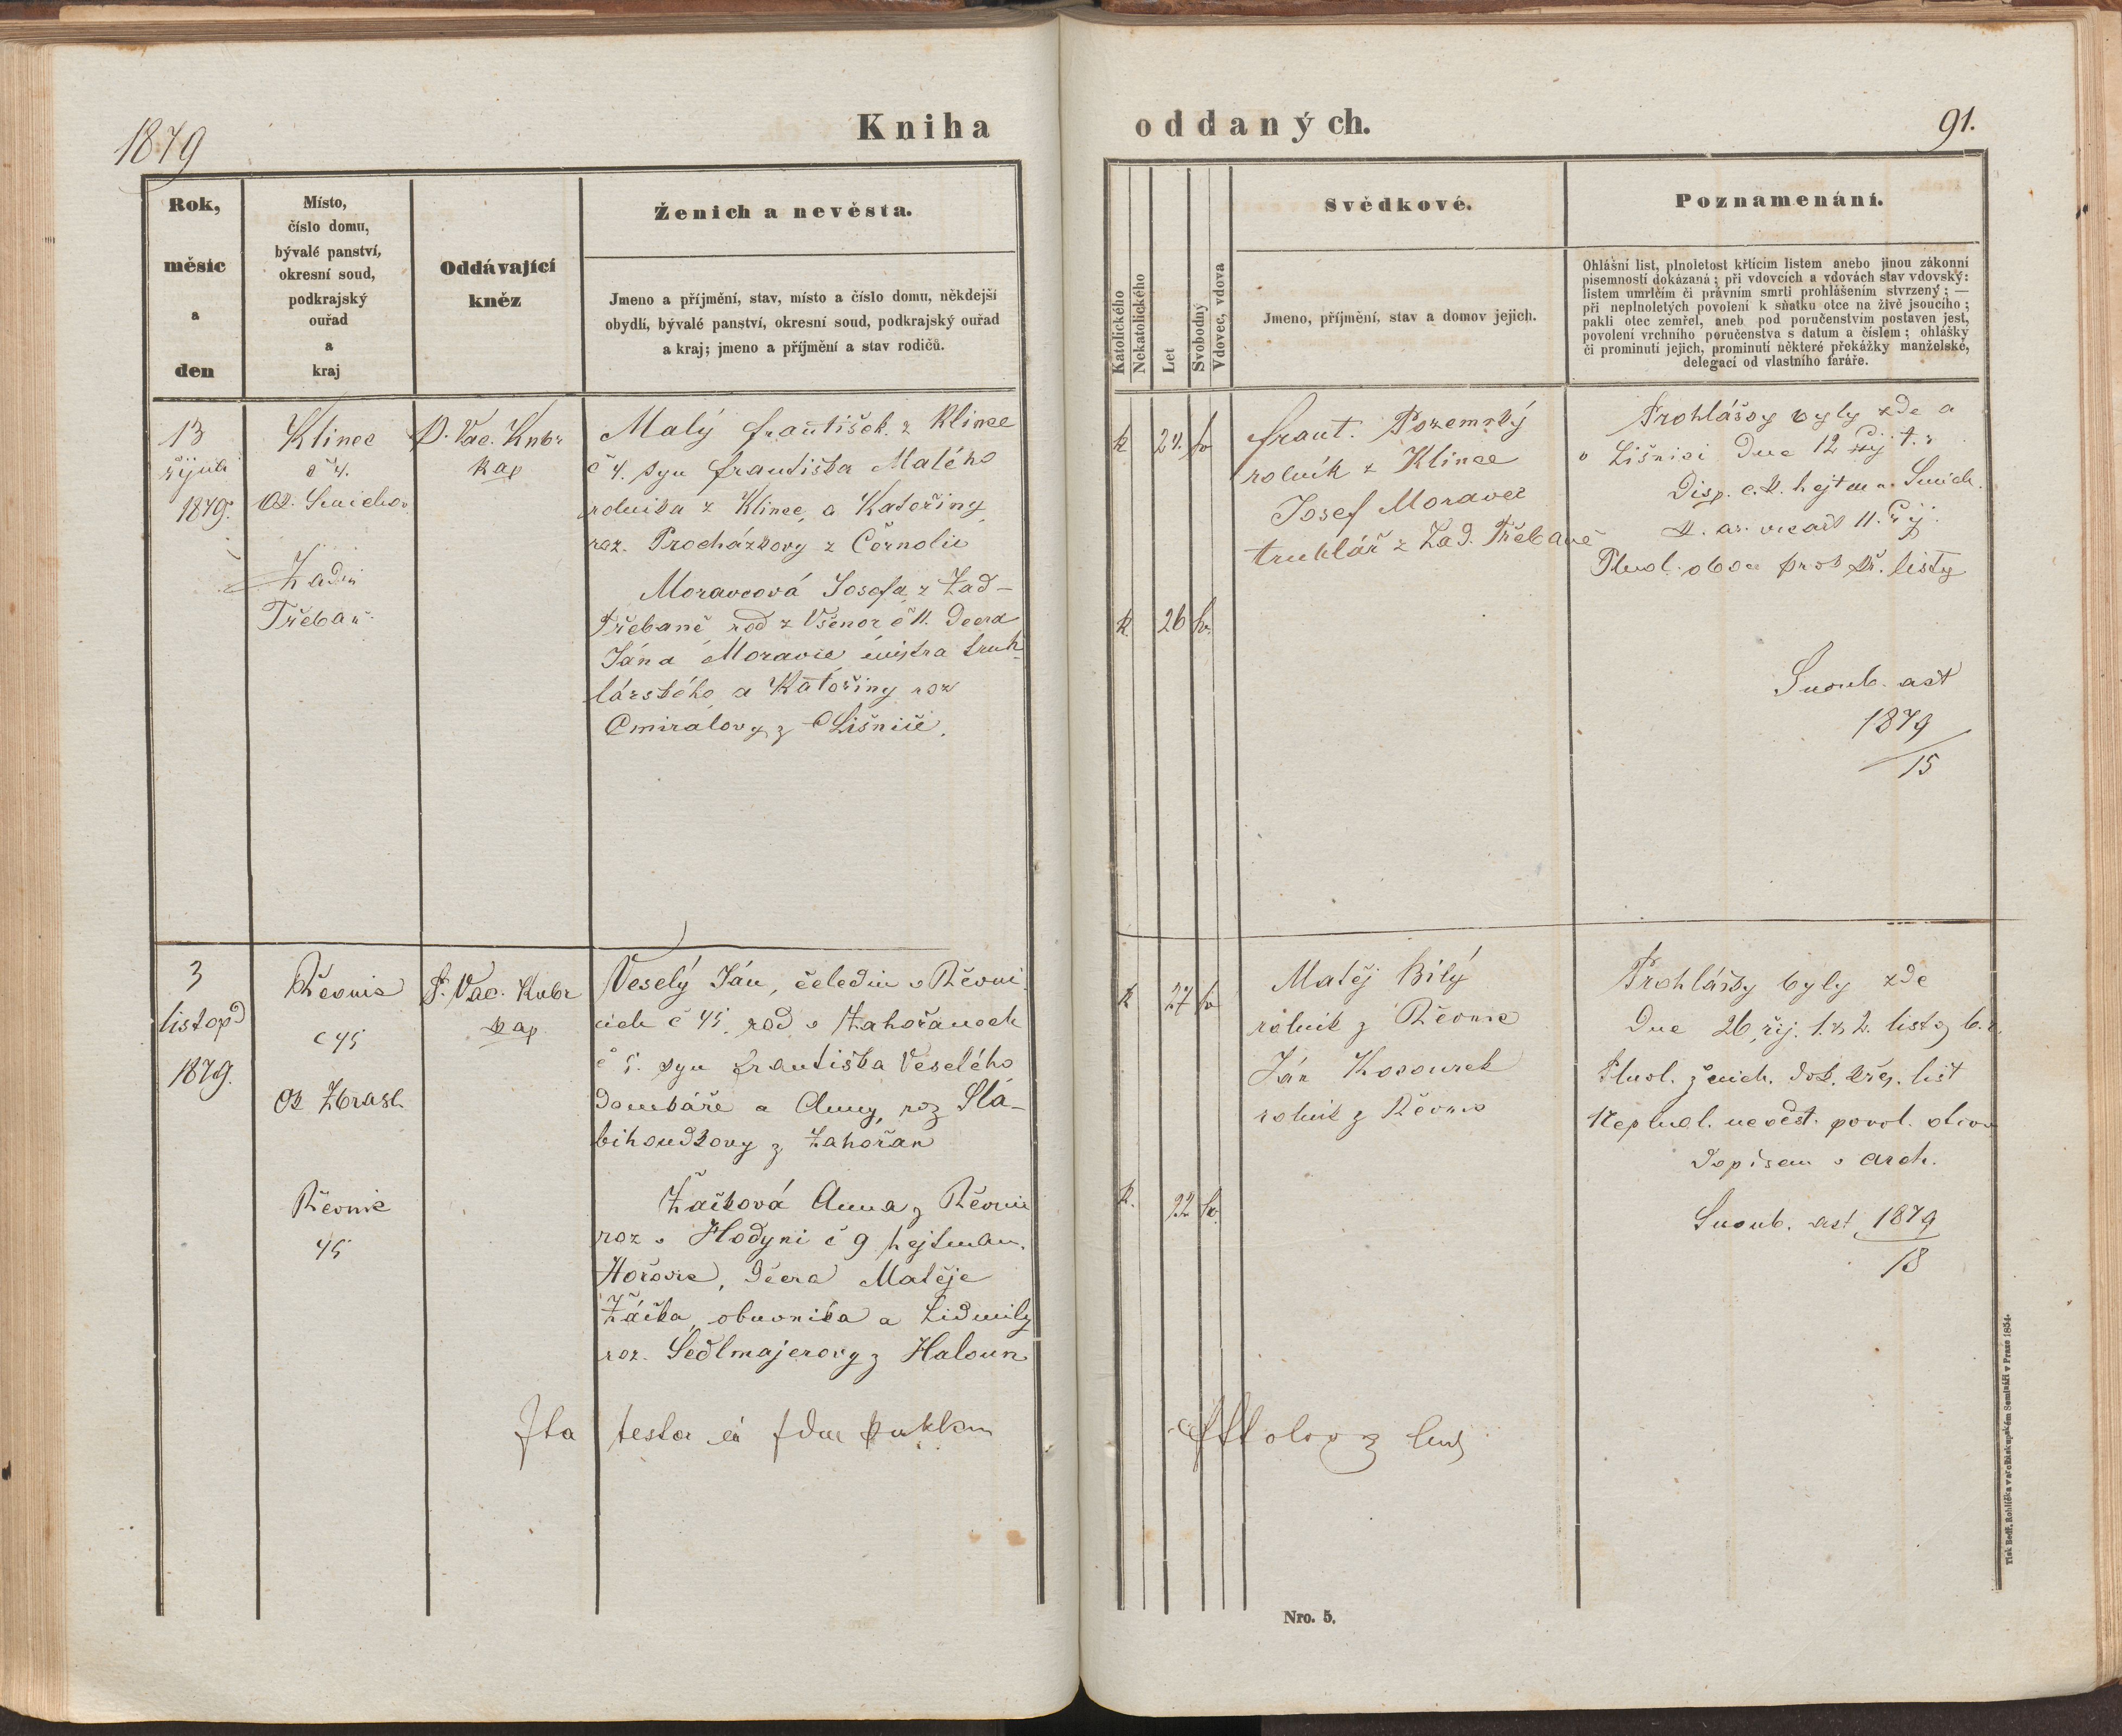 1879
Kniha
oddaných.
91.
Rok,
měsíc
a
den
Místo,
číslo domu,
bývalé panství,
okresní soud,
podkrajský
ouřad
a
kraj
Oddávající
kněz
Ženich a nevěsta.
Jmeno a příjmění, stav, místo a číslo domu, někdejší
obydlí, bývalé panství, okresní soud, podkrajský ouřad
a kraj; jmeno a příjmění a stav rodičů.
Katolického
Nekatolického
Let
Svobodný
Vdovec, vdova
Svědkové.
Jmeno, příjmění, stav a domov jejich.
Poznamenání.
Ohlášní list, plnoletost křtícím listem anebo jinou zákonní
písemností dokázaná; při vdovcích a vdovách stav vdovský:
listem umrlčím či právním smrti prohlášením stvrzený; —
při neplnoletých povolení k sňatku otce na živě jsoucího;
pakli otec zemřel, aneb pod poručenstvím postaven jest,
povolení vrchního poručenstva s datum a číslem; ohlášky
či prominutí jejich, prominutí některé překážky manželské,
delegací od vlastního faráře.
13
října
1879.
Klinec
č 4.
ok. Smíchov
Zadní
Třebaň
P. Vac. Kubr
kap
Malý František z Klince
č 4. syn Františka Malého
rolníka z Klince, a Kateřiny
roz. Procházkovy z Černolic
Moravcová Josefa z Zad-
Třebaně rod z Všenor č 11. dcera
Jána Moravce mistra truh
lářského a Kateřiny roz
Cmirálovy z Líšnice.
k 24. sv
k. 26 sv.
Frant. Pozemský
rolník z Klince
Josef Moravec
truhlář z Zad. Třebaně
Prohlášky byly zde a
v Líšnici dne 12 říj t. r.
Disp. c. k. hejtm. Smích.
11. říj.
Plnol. obou prok kř. listy
Snoub. akt
1879
15
3
listopd
1879.
Řevnic
č 45
ok Zbrasl.
Řevnic
45
P. Vac. Kubr
kap
Veselý Ján, čeledín v Řevni
cích č 45. rod v Zahořanech
č 5. syn Františka Veselého
domkáře a Anny, roz Sla-
bihoudkovy z Zahořan
Žáčková Anna z Řevnic
roz v Hodyni č 9 hejtman.
Hořovic, dcera Matěje
Žáčka, obuvníka a Lidmily
roz. Sedlmajerovy z Haloun
k 27 sv
k. 22 sv.
Matěj Bílý
rolník z Řevnic
Ján Kocourek
rolník z Řevnic
Prohlášky byly zde
dne 26. říj. 1. a 2. listop b. r.
Plnol. ženich. dok. křeg. list
Neplnol. nevěst. povol. otcov
dopisem v arch.
Snoub. akt 1879
18
Ita testor
Tisk Bedř. Rohlíčka v arcibiskupském Semináři v Praze 1854.
Nro. 5.